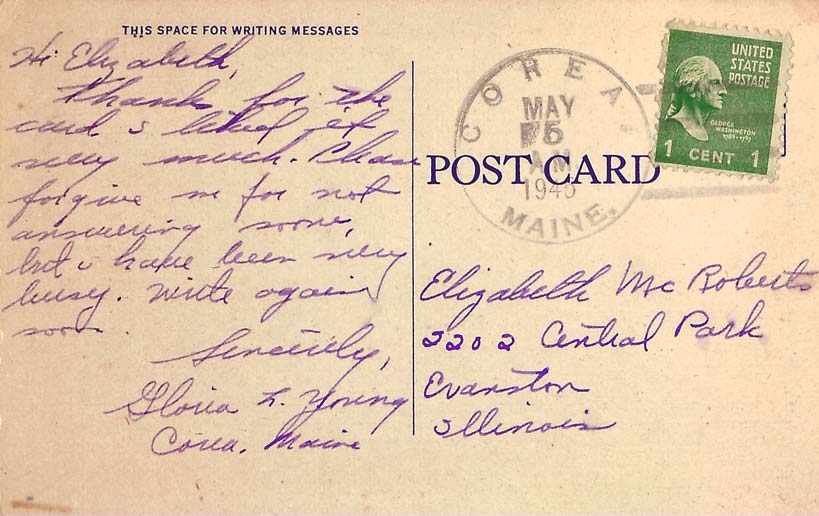 THIS SPACE FOR WRITING MESSAGES
Hi Elizabeth,
Thanks for the
card. I liked it
very much. Please
forgive me for not
answering sooner,
but I have been very
busy. Write again
soon.
Sincerely,
Gloria L. Young
Corea, Maine
POST CARD
COREA
MAY
5
AM
MAINE.
UNITED
STATES
POSTAGE
GEORGE
WASHINGTON
1789-1797
1 CENT 1
Elizabeth Mc Roberts
2202 Central Park
Evanston
Illinois